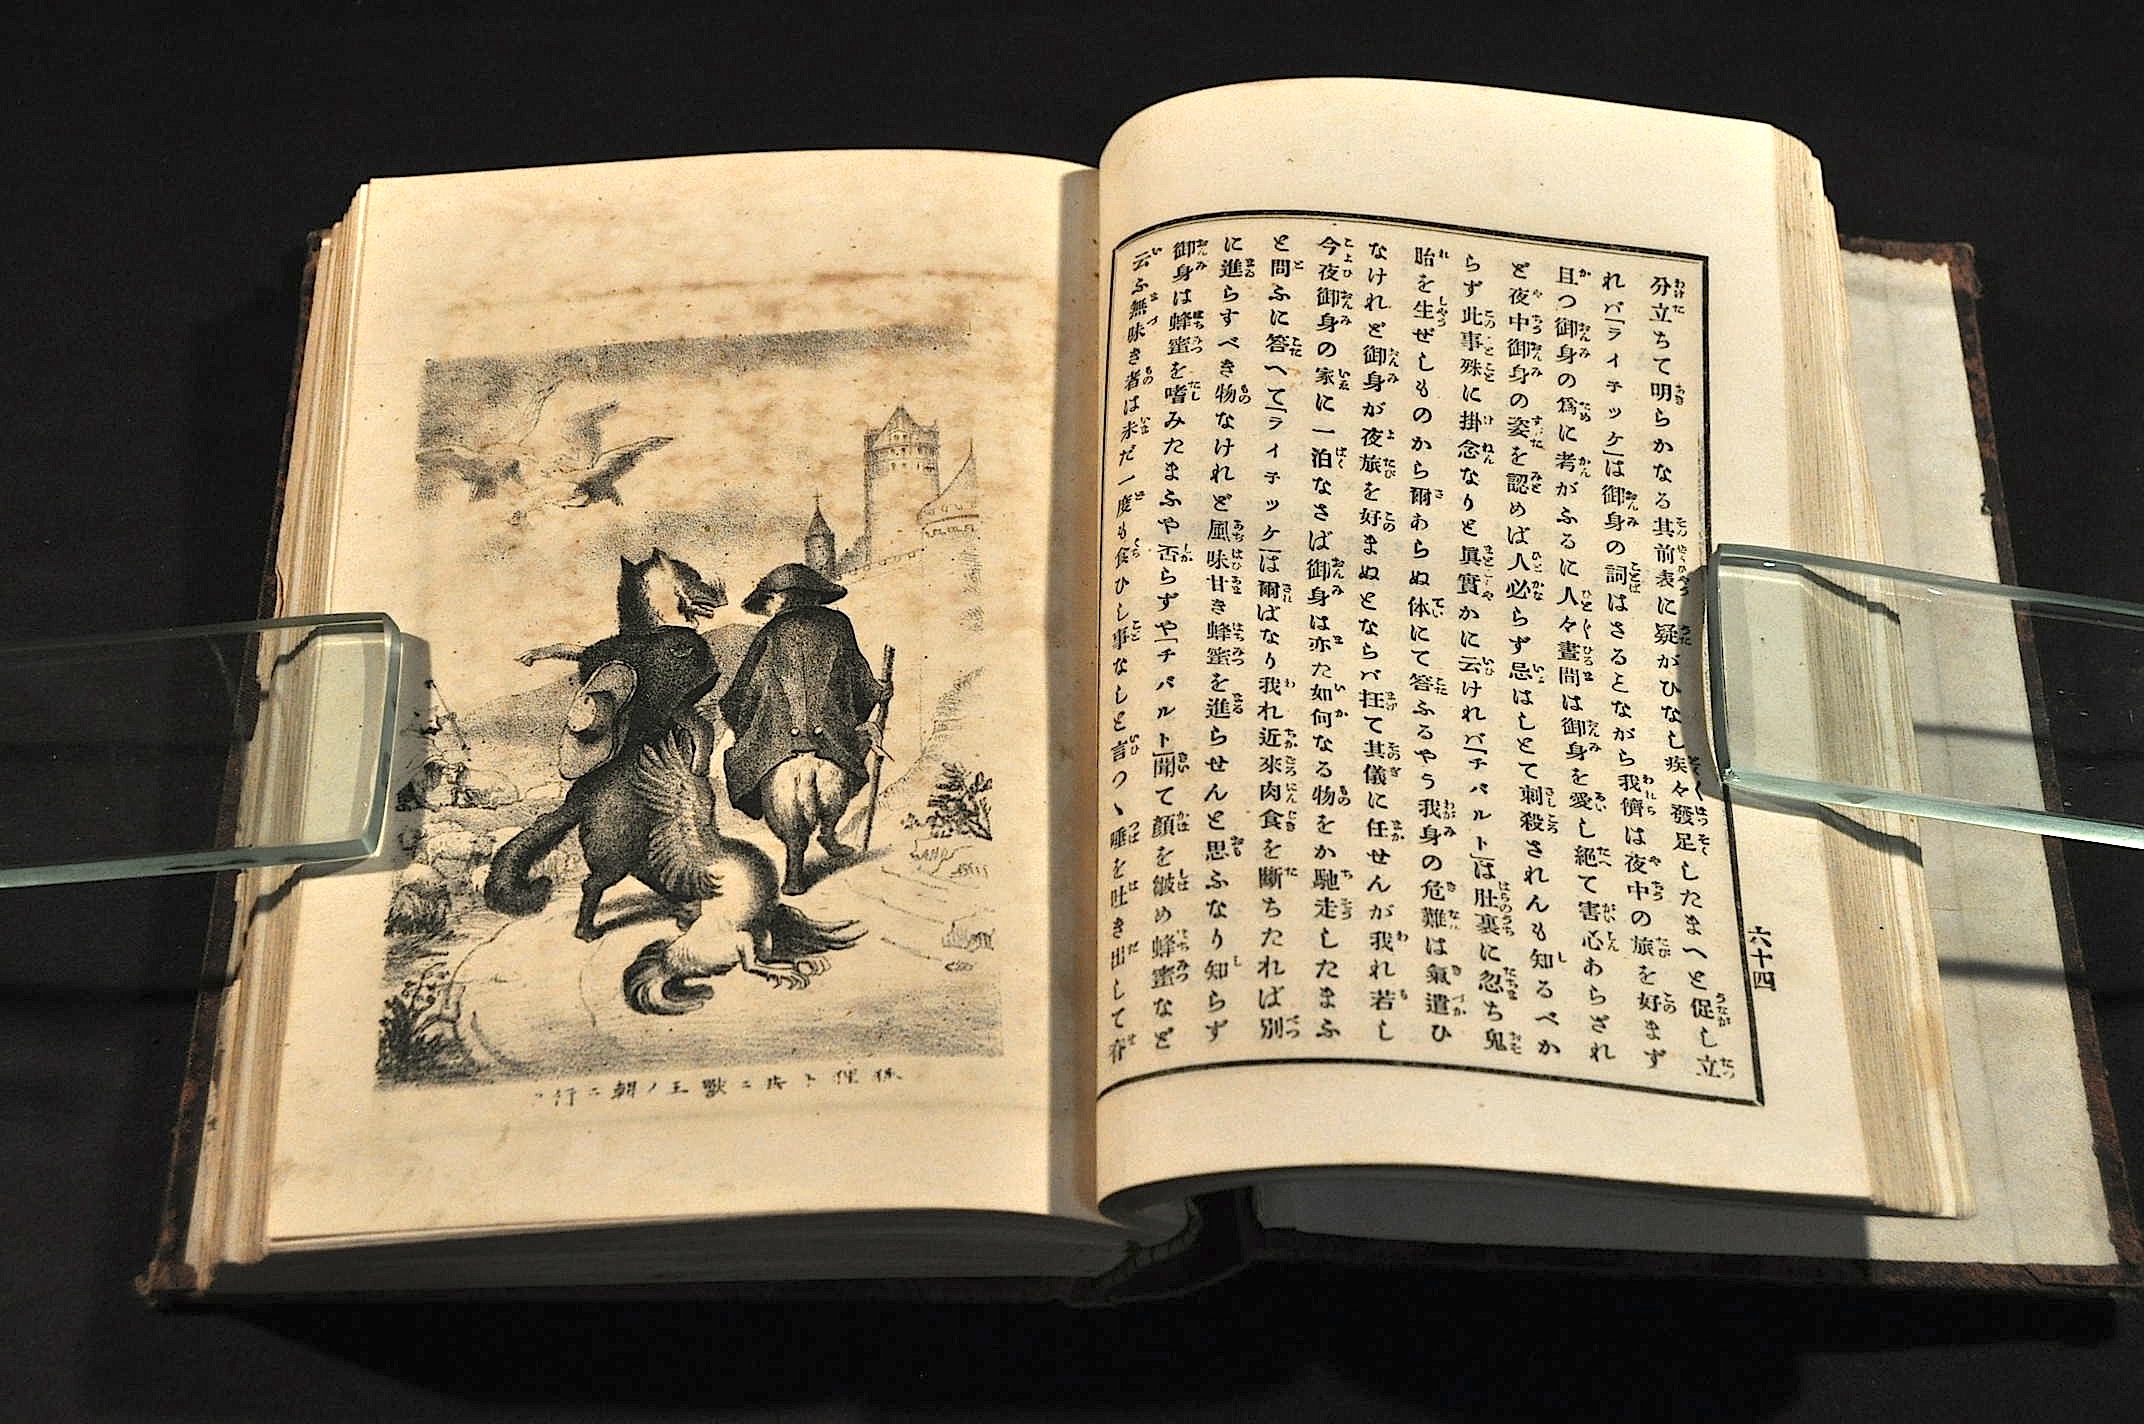 六十四
分立ちて明らかなる其前表に疑がひなし疾々發足したまへと促し立
れバ「ライチッケ」は御身の詞はさるとながら我儕は夜中の旅を好まず
且つ御身の爲に考がふるに人々晝間は御身を愛し絕て害心あらざれ
ど夜中御身の姿を認めば人必らず忌はしとて刺殺されんも知るべか
らず此事殊に掛念なりと眞實かに云けれバ「チバルト」は肚裏に忽ち鬼
胎を生ぜしものから爾あらぬ体にて答ふるやう我身の危難は氣遣ひ
なけれど御身が夜旅を好まぬとならバ抂て其儀に任せんが我れ若し
今夜御身の家に一泊なさば御身は亦た如何なる物をか馳走したまふ
と問ふに答へて「ライチッケ」は爾ばなり我れ近來肉食を斷ちたれば別
に進らすべき物なけれど風味甘き蜂蜜を進らせんと思ふなり知らず
御身は蜂蜜を嗜みたまふや否らずや「チバルト」聞て顏を皺め蜂蜜など
云ふ無味き者は未だ一度も食ひし事なしと言つゝ唾を吐き出して脊
ト共ニ獸王ノ朝ニ行ク